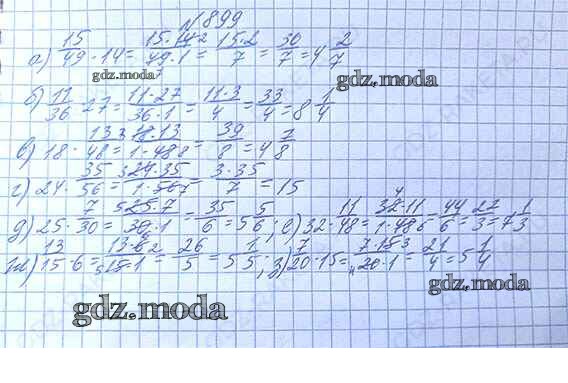 №899
а) 15/49 · 14 = 15·14 2/49·1 7 = 15·2/7 = 30/7 = 4 2/7
б) 11/36 · 27 = 11·27/36·1 = 11·3/4 = 33/4 = 8 1/4
в) 18 · 13/48 = 3 18·13/1·48 8 = 39/8 = 4 7/8
г) 24 · 35/56 = 3 24·35/1·56 7 = 3·35/7 = 15
д) 25 · 7/30 = 5 25·7/30·1 = 35/6 = 5 5/6; е) 32 · 11/48 = 4 32·11/1·48 6 = 44/6 = 22/3 = 7 1/3
ж) 13/15 · 6 = 13·6 2/5 15·1 = 26/5 = 5 1/5; з) 7/20 · 15 = 7·15 3/4 20·1 = 21/4 = 5 1/4
gdz.moda
gdz.moda
gdz.moda